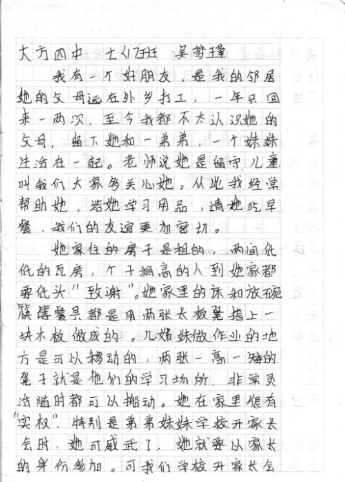 大方四中 七(2)班 吴梦瑾
我有一个好朋友，是我的邻居
她的父母远在外乡打工，一年只回
来一两次，至今我都不太认识她的
父母，留下她和一弟弟，一个妹妹
生活在一起。老师说她是留守儿童
叫我们大家多关心她。从此我经常
帮助她，给她学习用品，请她吃早
餐，我们的友谊更加密切。
她家住的房子是租的，两间低
低的瓦房，个子稍高的人到她家都
要低头“致谢”。她家里的床和放碗
筷餐具都是用两张长板凳搭上一
块木板做成的。几姊妹做作业的地
方是可以搬动的，两张一高一矮的
凳子就是他们的学习场所，非常灵
活随时都可以搬动。她在家里很有
“实权”，特别是弟弟妹妹学校开家长
会时，她可威武了，她就要以家长
的身份参加。可我们学校开家长会